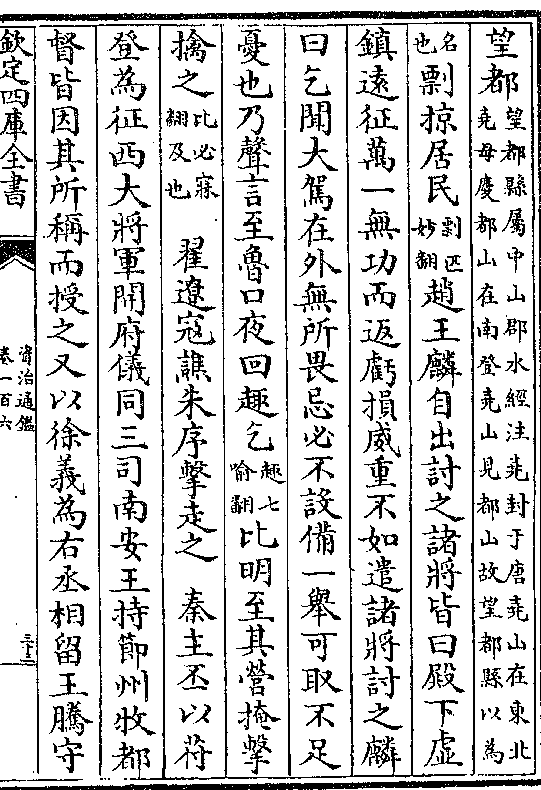 望都望都縣屬中山郡水經注堯封于唐堯山在東北
堯母慶都山在南登堯山見都山故望都縣以為
名也剽掠居民剽匹妙翻趙王麟自出討之諸將皆曰殿下虛
鎮遠征萬一無功而返虧損威重不如遣諸將討之麟
曰乞聞大駕在外無所畏忌必不設備一舉可取不足
憂也乃聲言至魯口夜回趣乞趣七喻翻比明至其營掩擊
擒之比必寐翻及也 翟遼寇譙朱序擊走之 秦主丕以苻
登為征西大將軍開府儀同三司南安王持節州牧都
督皆因其所稱而授之又以徐義為右丞相留王騰守
欽定四庫全書
資治通鑑
卷一百六